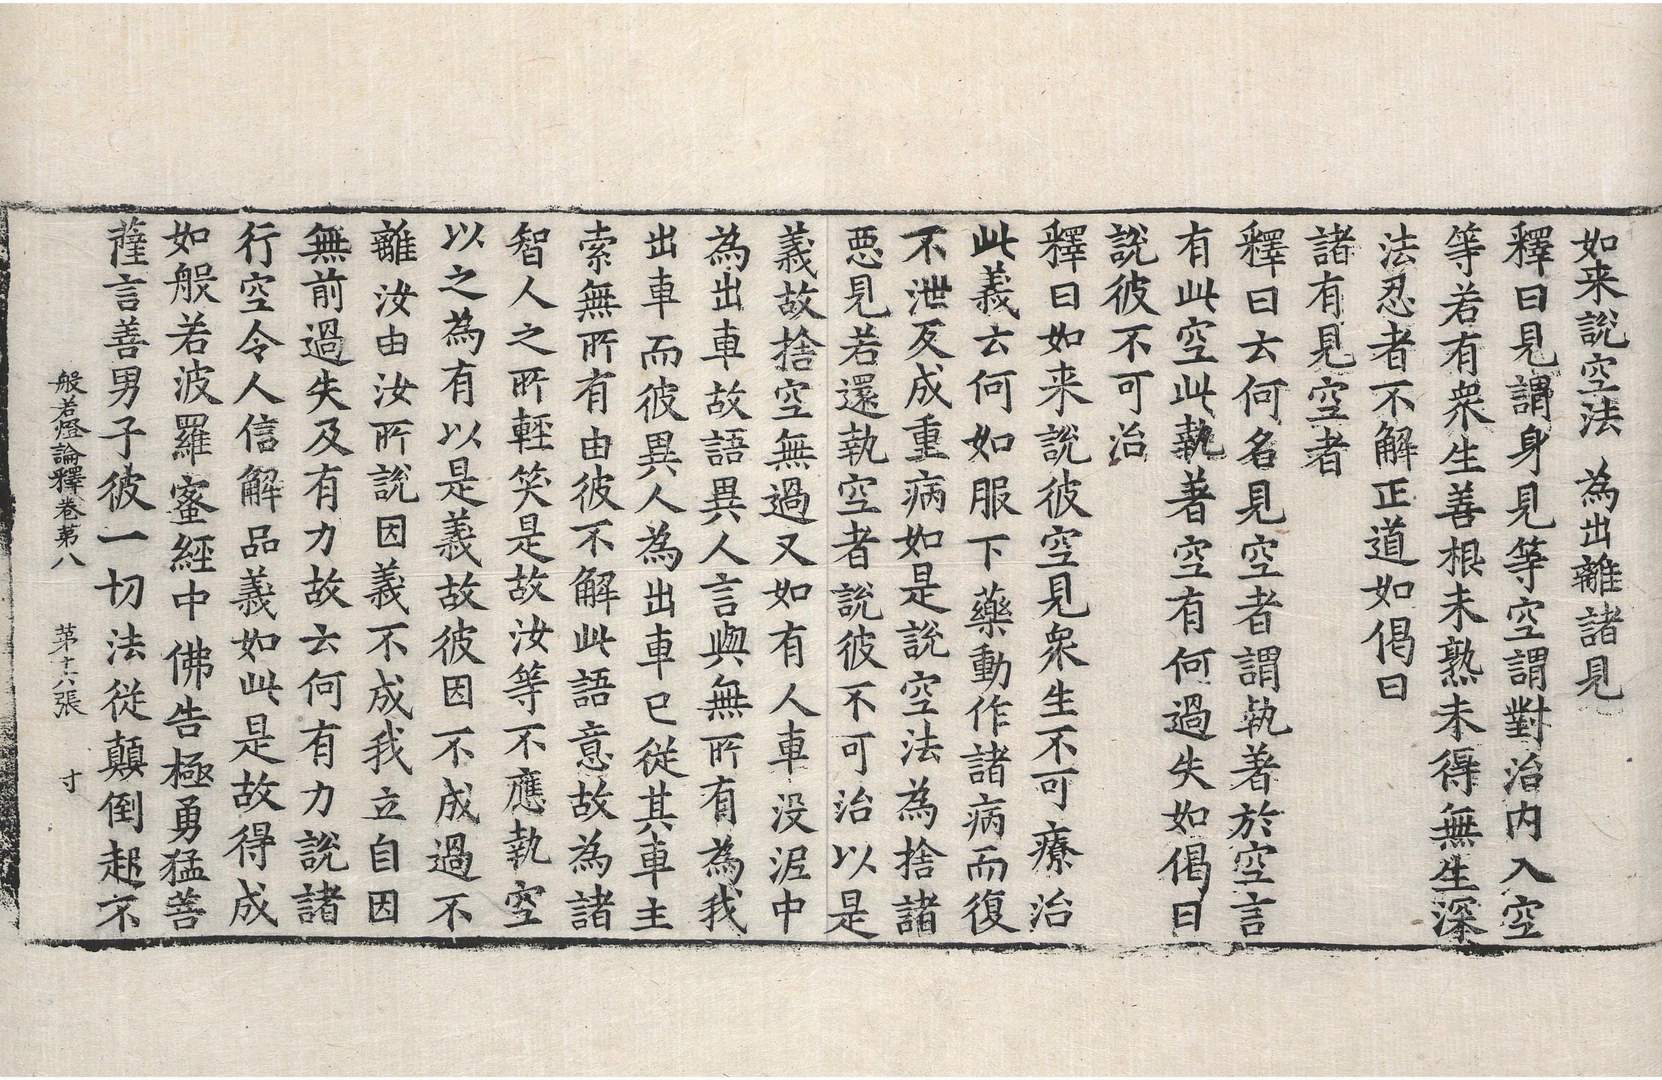 如来說空法　為出離諸見
釋曰見謂身見等空謂對治內入空
等若有衆生善根未熟未得無生深
法忍者不解正道如偈曰
諸有見空者
釋曰云何名見空者謂執著於空言
有此空此執著空有何過失如偈曰
說彼不可治
釋曰如来說彼空見衆生不可療治
此義云何如服下藥動作諸病而復
不泄反成重病如是說空法為捨諸
惡見若還執空者說彼不可治以是
義故捨空無過又如有人車没泥中
為出車故語異人言與無所有為我
出車而彼異人為出車已從其車主
索無所有由彼不解此語意故為諸
智人之所輕笑是故汝等不應執空
以之為有以是義故彼因不成過不
離汝由汝所說因義不成我立自因
無前過失及有力故云何有力說諸
行空令人信解品義如此是故得成
如般若波羅蜜經中佛告極勇猛善
薩言善男子彼一切法從顛倒起不
般若燈論釋卷第八　第十六張　寸